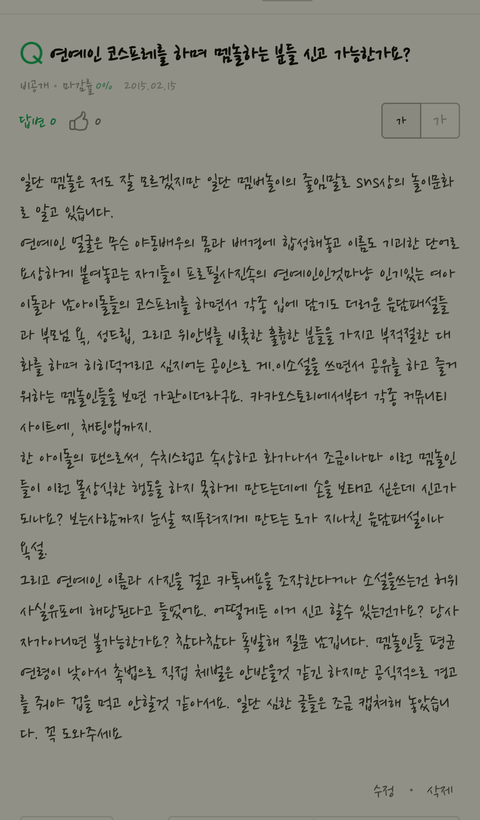 Q 연예인 코스프레를 하며 멤놀하는 분들 신고 가능한가요?
비공개 · 마감률 0% 2015.02.15
답변 0 0
가 가
일단 멤놀은 저도 잘 모르겠지만 일단 멤버놀이의 줄임말로 sns상의 놀이문화
로 알고 있습니다.
연예인 얼굴은 무슨 야동배우의 몸과 배경에 합성해놓고 이름도 기괴한 단어로
요상하게 붙여놓고는 자기들이 프로필사진속의 연예인인것마냥 인기있는 여아
이돌과 남아이돌들의 코스프레를 하면서 각종 입에 담기도 더러운 음담패설들
과 부모님 욕, 성드립, 그리고 위안부를 비롯한 훌륭한 분들을 가지고 부적절한 대
화를 하며 히히덕거리고 심지어는 공인으로 게.이소설을 쓰면서 공유를 하고 즐거
워하는 멤놀인들을 보면 가관이더라구요. 카카오스토리에서부터 각종 커뮤니티
사이트에, 채팅앱까지.
한 아이돌의 팬으로써, 수치스럽고 속상하고 화가나서 조금이나마 이런 멤놀인
들이 이런 몰상식한 행동을 하지 못하게 만드는데에 손을 보태고 싶은데 신고가
되나요? 보는사람까지 눈살 찌푸려지게 만드는 도가 지나친 음담패설이나
욕설.
그리고 연예인 이름과 사진을 걸고 카톡내용을 조작한다거나 소설을쓰는건 허위
사실유포에 해당된다고 들었어요. 어떻게든 이거 신고 할수 있는건가요? 당사
자가아니면 불가능한가요? 참다참다 폭발해 질문 남깁니다. 멤놀인들 평균
연령이 낮아서 촉법으로 직접 처벌은 안받을것 같긴 하지만 공식적으로 경고
를 줘야 겁을 먹고 안할것 같아서요. 일단 심한 글들은 조금 캡쳐해 놓았습니
다. 꼭 도와주세요
수정 · 삭제